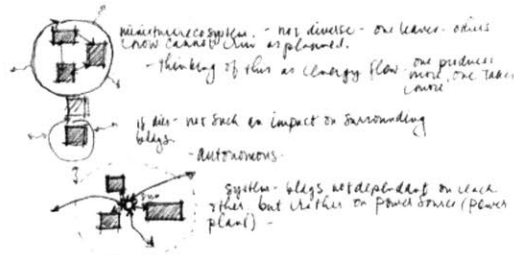 miniature ecosystem. - not diverse - one leaves - others
now cannot run as planned.
- thinking of this as energy flow - one produces
more, one takes
more
if dies - not such an impact on surrounding
bldgs.
- autonomous -
3.
sun
system - bldgs not dependant on each
other but rather on power source (power
plant) -